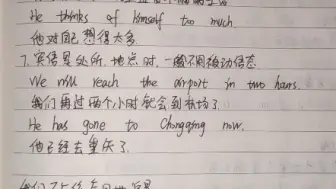 He thinks of himself too much.
他对自己想得太多.
7. 宾语是处所、地点时,一般不用被动语态
We will reach the airport in two hours.
我们再过两个小时就会到机场了.
He has gone to Chongqing now.
他已经去重庆了.